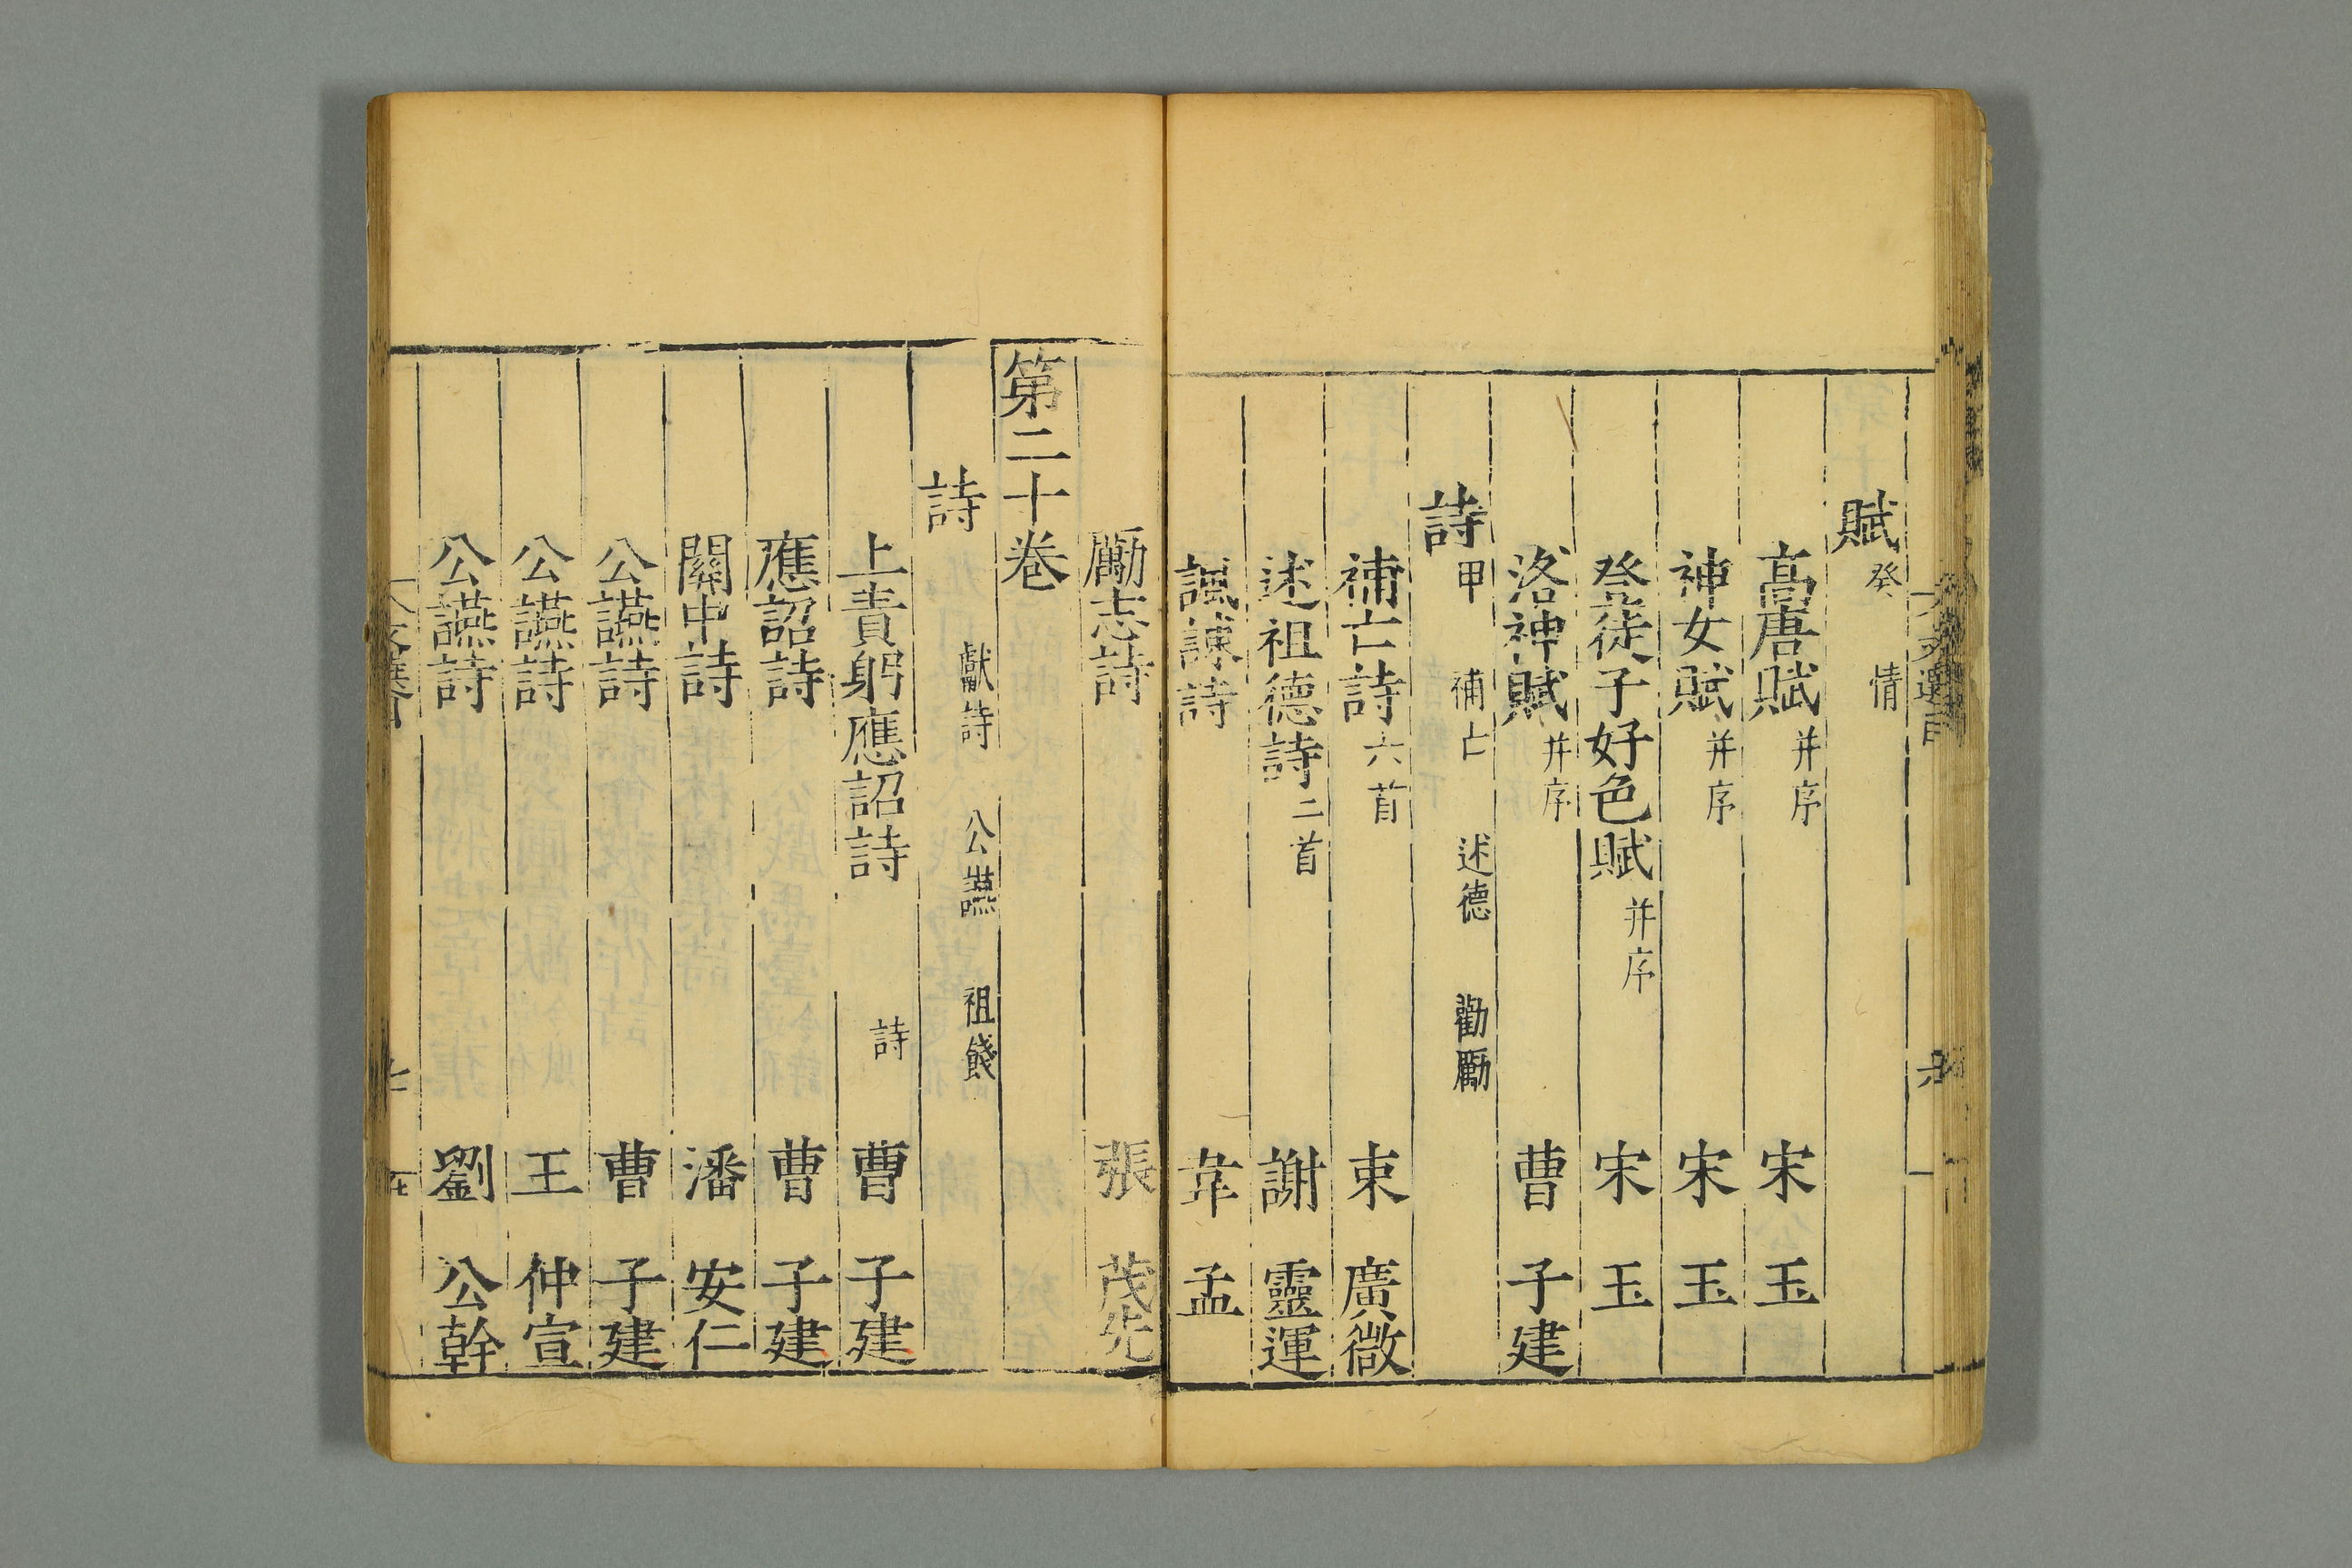 賦癸 情
高唐賦并序 宋玉
神女賦并序 宋玉
登徒子好色賦并序 宋玉
洛神賦并序 曹子建
詩甲 補亡 述德 勸勵
補亡詩六首 束廣微
述祖德詩二首 謝靈運
諷諫詩 韋孟
勵志詩 張茂先
第二十卷
詩 獻詩 公讌 祖餞
上責躬應詔詩 詩 曹子建
應詔詩 曹子建
關中詩 潘安仁
公讌詩 曹子建
公讌詩 王仲宣
公讌詩 劉公幹